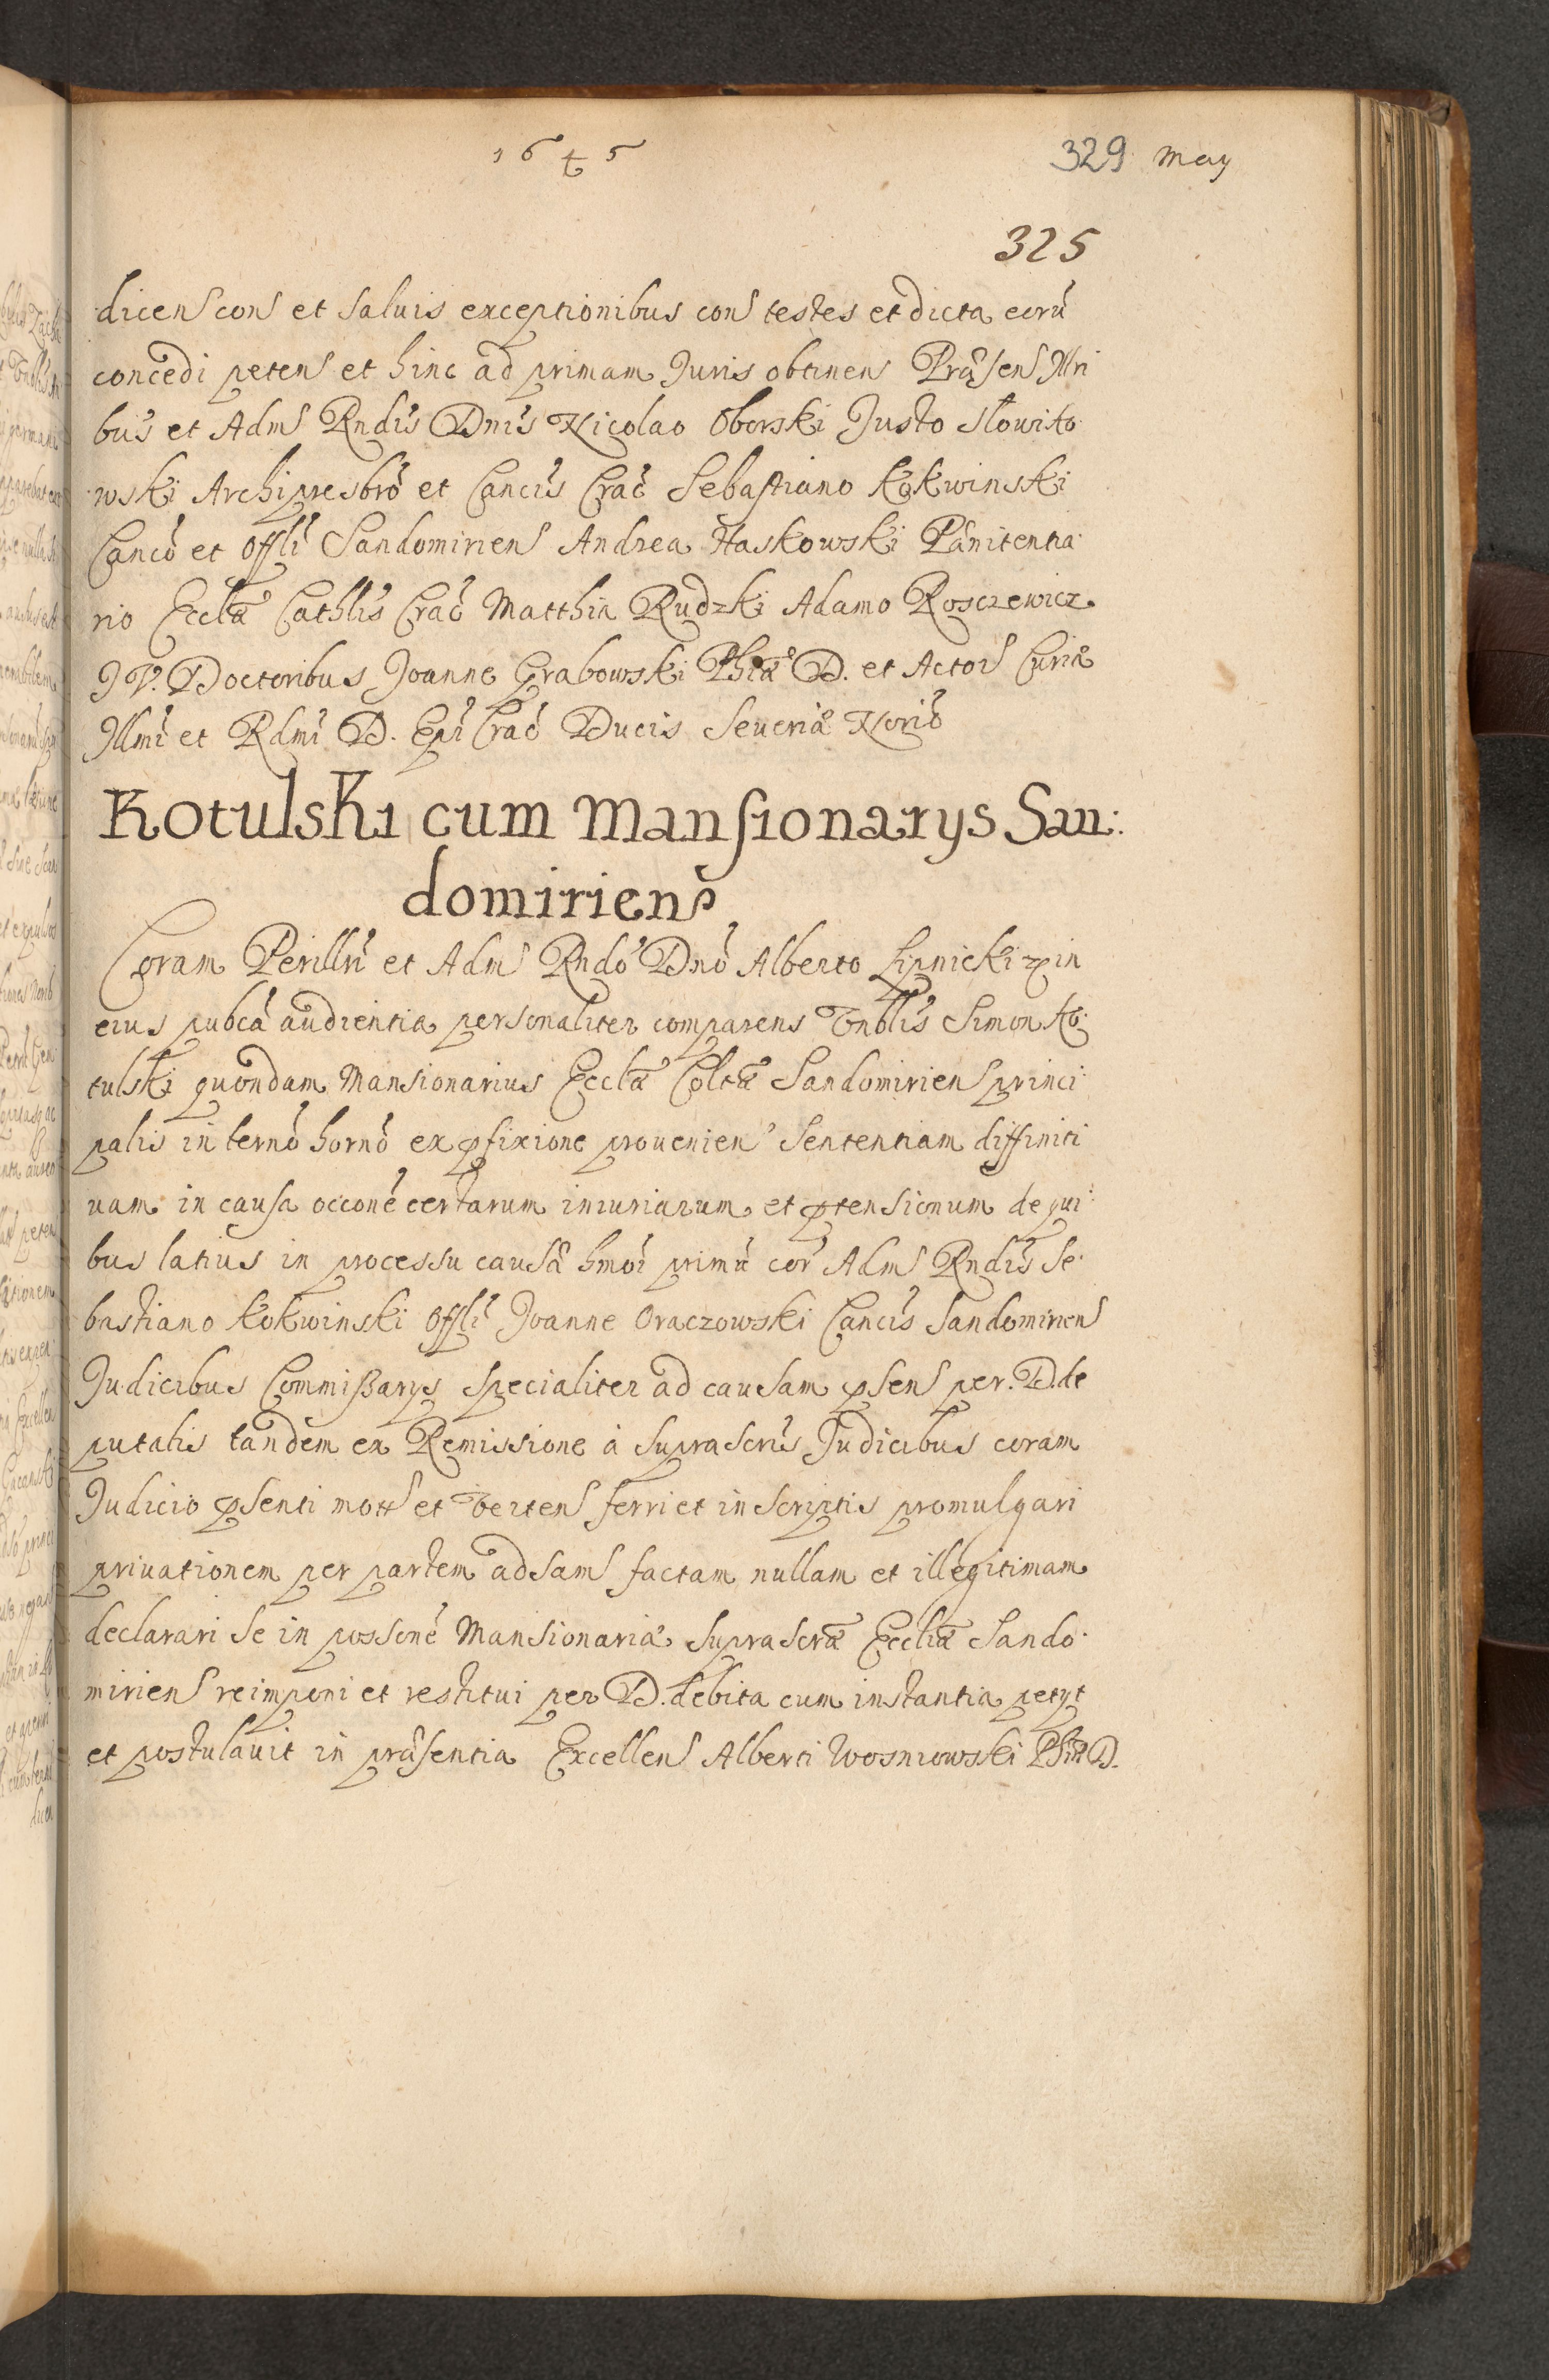 1645
329 may
325
dicens cons et saluis exceptionibus cons testes et dicta eorū
concedi petens et hinc ad primam Juris obtinens Præsens Illri
bus et Adm Rndis Dnis Nicolao Oborski Justo Słowiko
wski Archipresbro et Cancis Crac Sebastiano Kokwinski
Canco et Offli Sandomiriens Andrea Haskowski Pænitentia
rio Ecclæ Cathlis Crac Matthia Rudzki Adamo Rosczewicz
J V. Doctoribus Joanne Grabowski Phiæ D. et Actor Curiæ
Illmi et Rdmi D. Epi Crac Ducis Seueriæ Norio
Kotulski cum Mansionarys San:
domiriens
Coram Perillri et Adm Rndo Dno Alberto Lipnicki in
eius pubca audientia personaliter comparens Vnblis Simon Ko
tulski quondam Mansionarius Ecclæ Coltæ Sandomiriens princi
palis in termo horno ex pfixione prouenien Sententiam diffiniti
uam in causa occone certarum iniuriarum et ptensionum de qui
bus latius in processu causæ hmoi primū cor Adm Rndis Se
bastiano Kokwinski Offli Joanne Oraczowski Cancis Sandomiriens
Judicibus Commissarys specialiter ad causam psens per D. de
putatis tandem ex Remissione à suprascris Judicibus coram
Judicio psenti mott et Vertens ferri et in scriptis promulgari
priuationem per partem adsam factam nullam et illegitimam
declarari se in possone Mansionariæ suprascræ Eccliæ Sando
miriens reimponi et restitui per D. debita cum instantia petyt
et postulauit in præsentia Excellens Alberti Wosniowski Phiæ D.